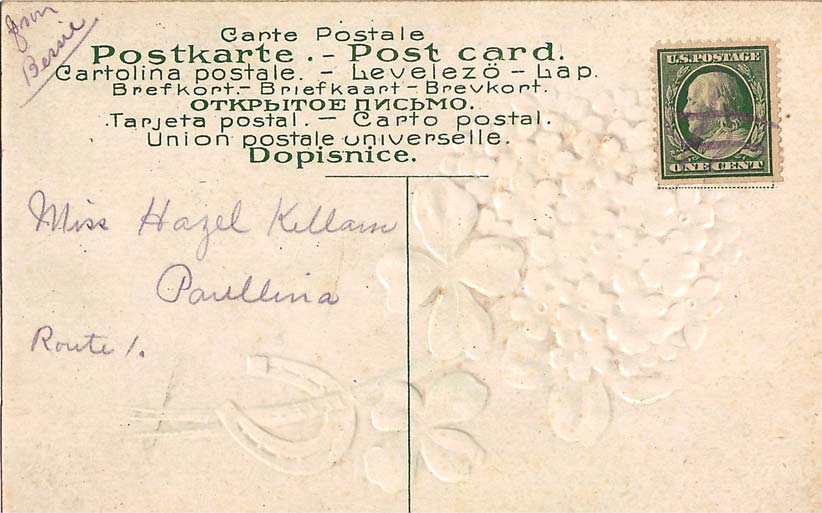 from
Bernie
Carte Postale
Postkarte . - Post card.
Cartolina postale. - Levelezö - Lap.
Brefkort.- Briefkaart - Brevkort.
ОТКРЫТОЕ ПИСЬМО.
Tarjeta postal. - Carto postal.
Union postale universelle.
Dopisnice.
U.S. POSTAGE
ONE CENT
Miss Hazel Kellam
Paullina
Route 1.